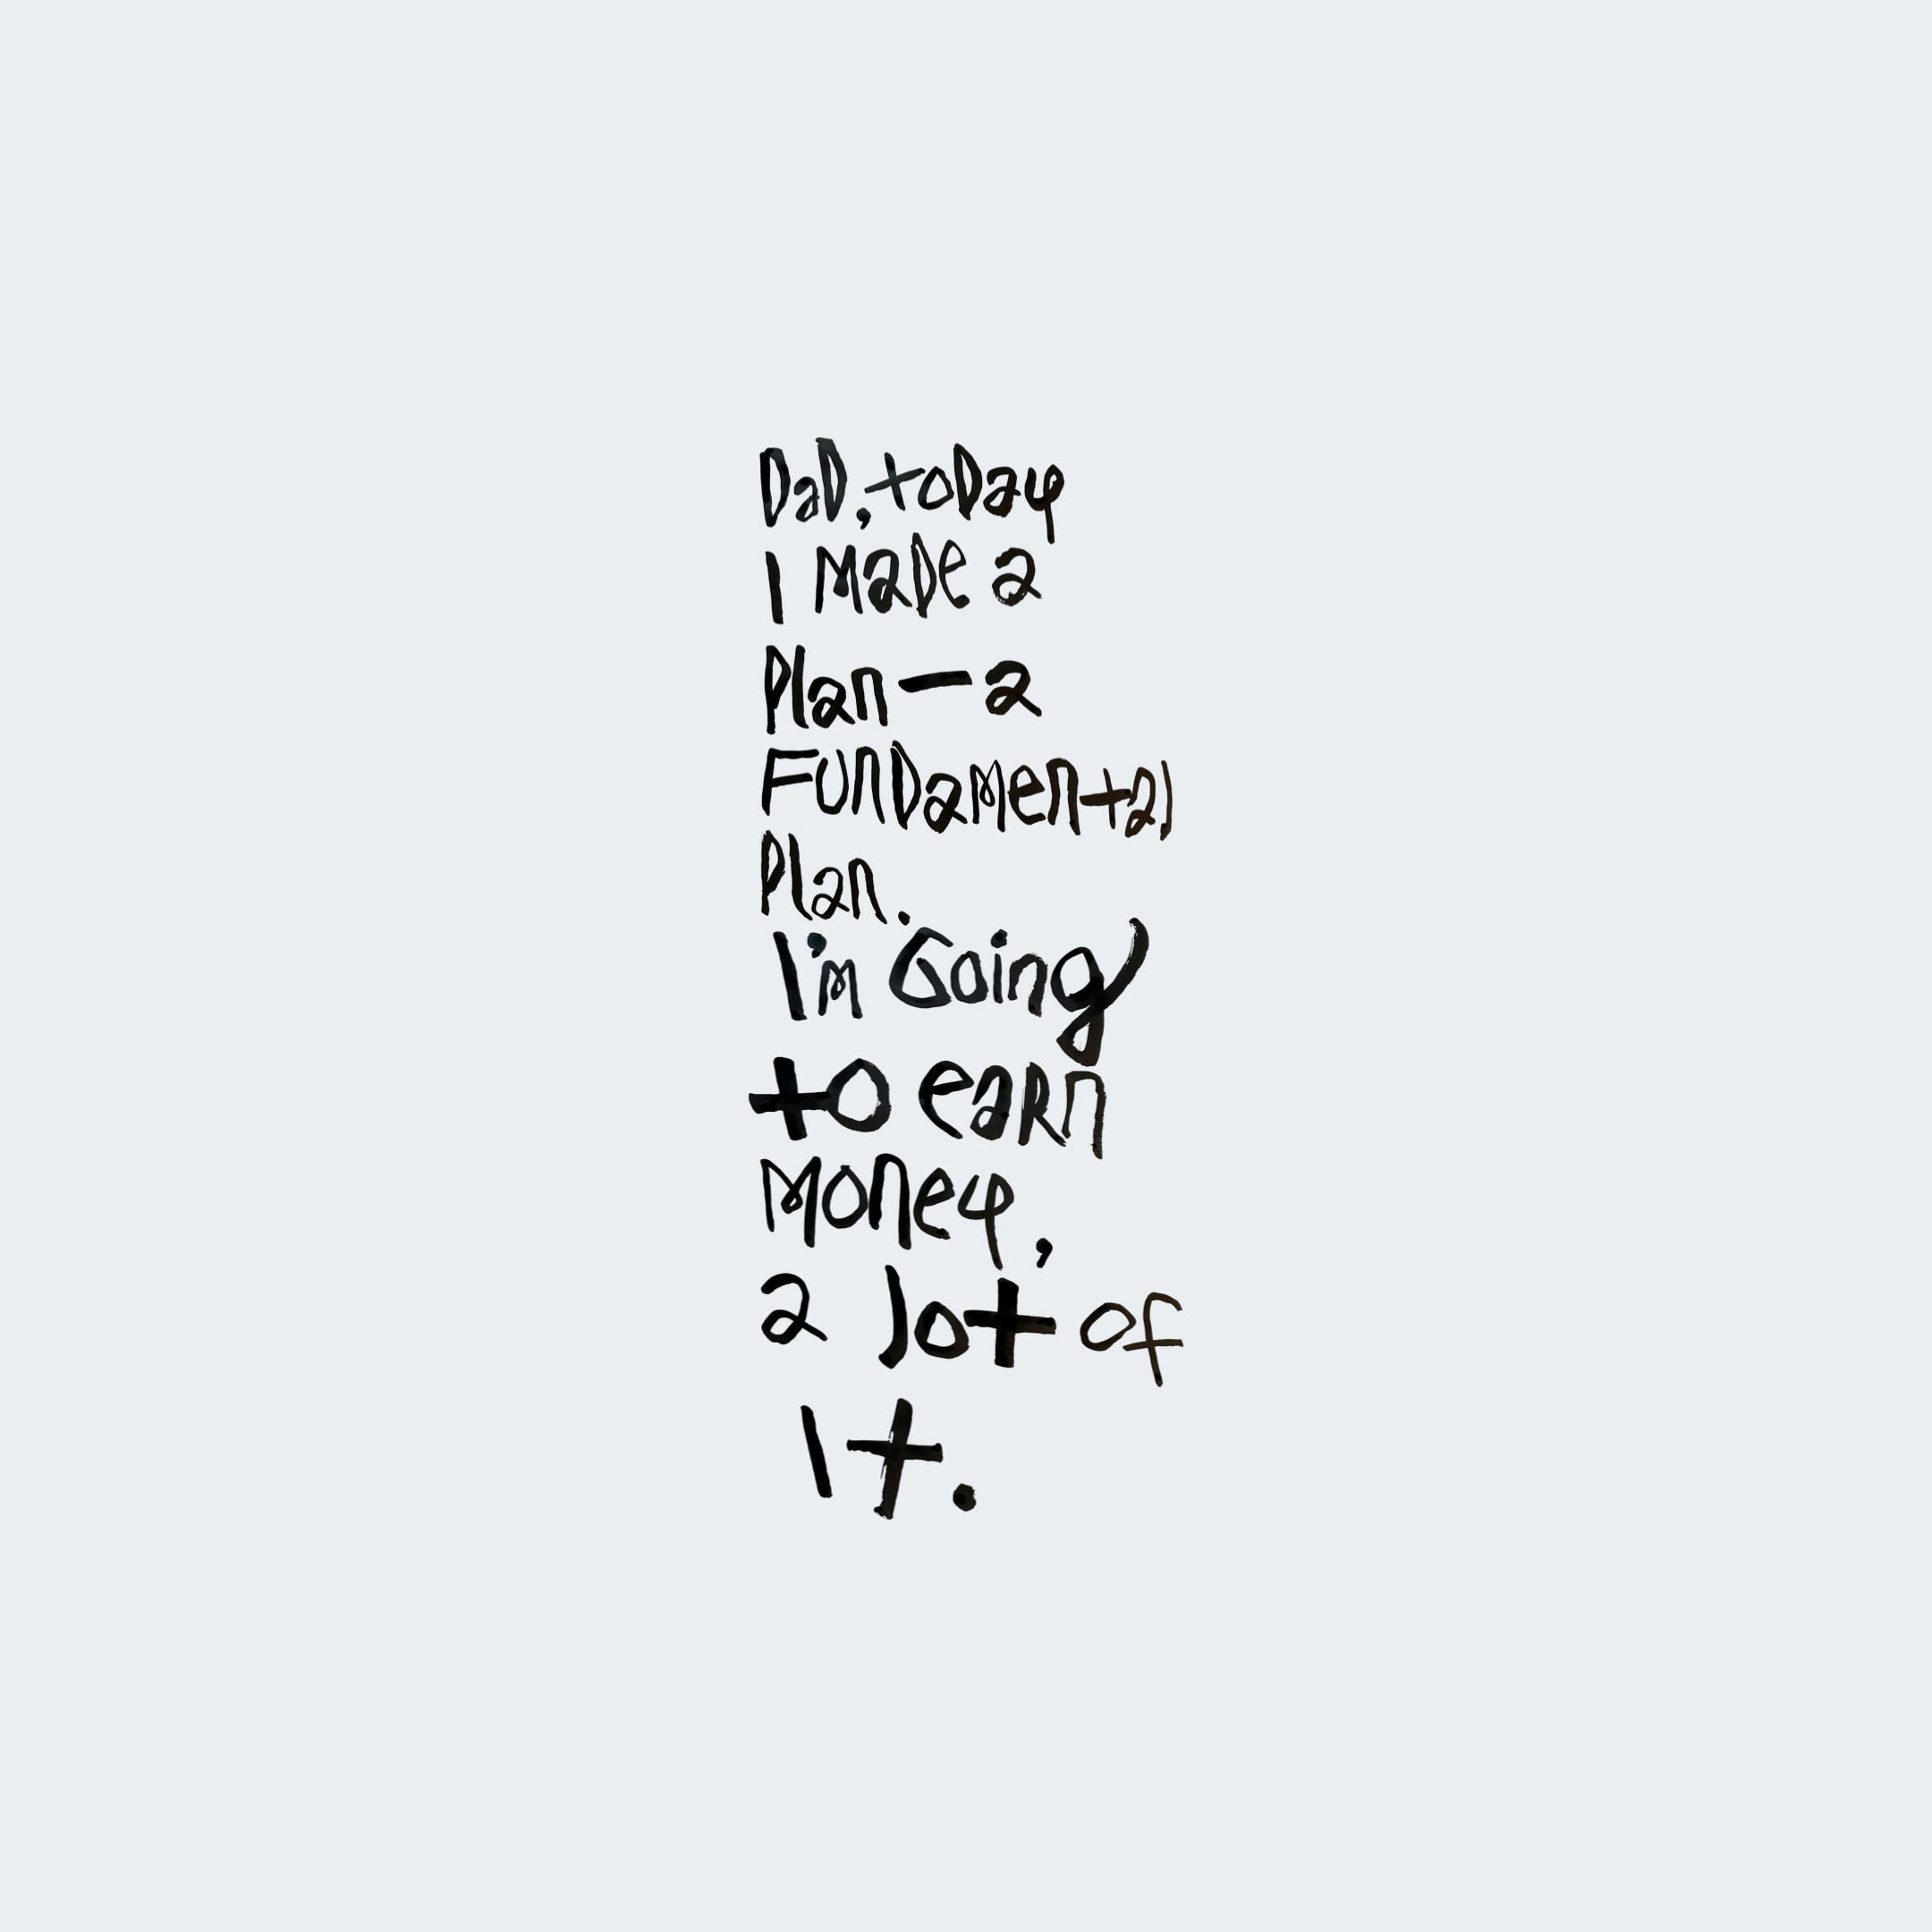 Dad, today
I made a
Plan — a
Fundamental
Plan.
I'm Going
to earn
money,
a lot of
It.